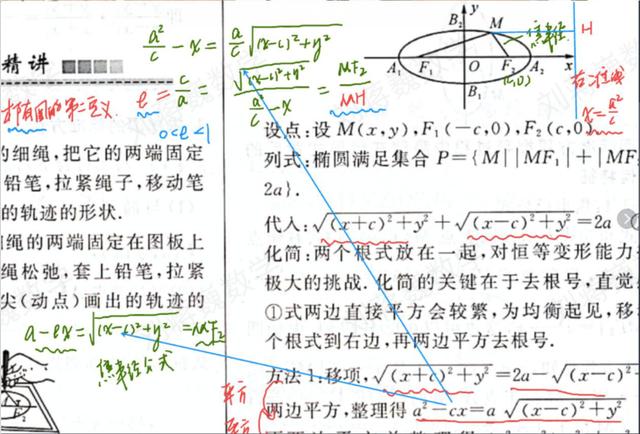 a²/c - x = a/c √((x-c)²+y²)
精讲
椭圆的第二定义 e = c/a = √((x-c)²+y²) / (a²/c - x) = MF₂/MH
0<e<1
y
B₂ M H
焦半径
A₁ F₁ O F₂ A₂ x
(c,0)
B₁
右准线
x = a²/c
的细绳,把它的两端固定
铅笔,拉紧绳子,移动笔
的轨迹的形状.
绳的两端固定在图板上
绳松弛,套上铅笔,拉紧
尖(动点)画出的轨迹的
a-ex = √((x-c)²+y²) = MF₂
焦半径公式
设点:设 M(x,y),F₁(-c,0),F₂(c,0)
列式:椭圆满足集合 P={M||MF₁|+|MF
2a}.
代入:√((x+c)²+y²)+√((x-c)²+y²)=2a
化简:两个根式放在一起,对恒等变形能力
极大的挑战.化简的关键在于去根号,直觉
①式两边直接平方会较繁,为均衡起见,移
个根式到右边,再两边平方去根号.
方法1:移项,√((x+c)²+y²)=2a-√((x-c)²
平方
两边平方,整理得 a²-cx=a√((x-c)²+y²)
平方